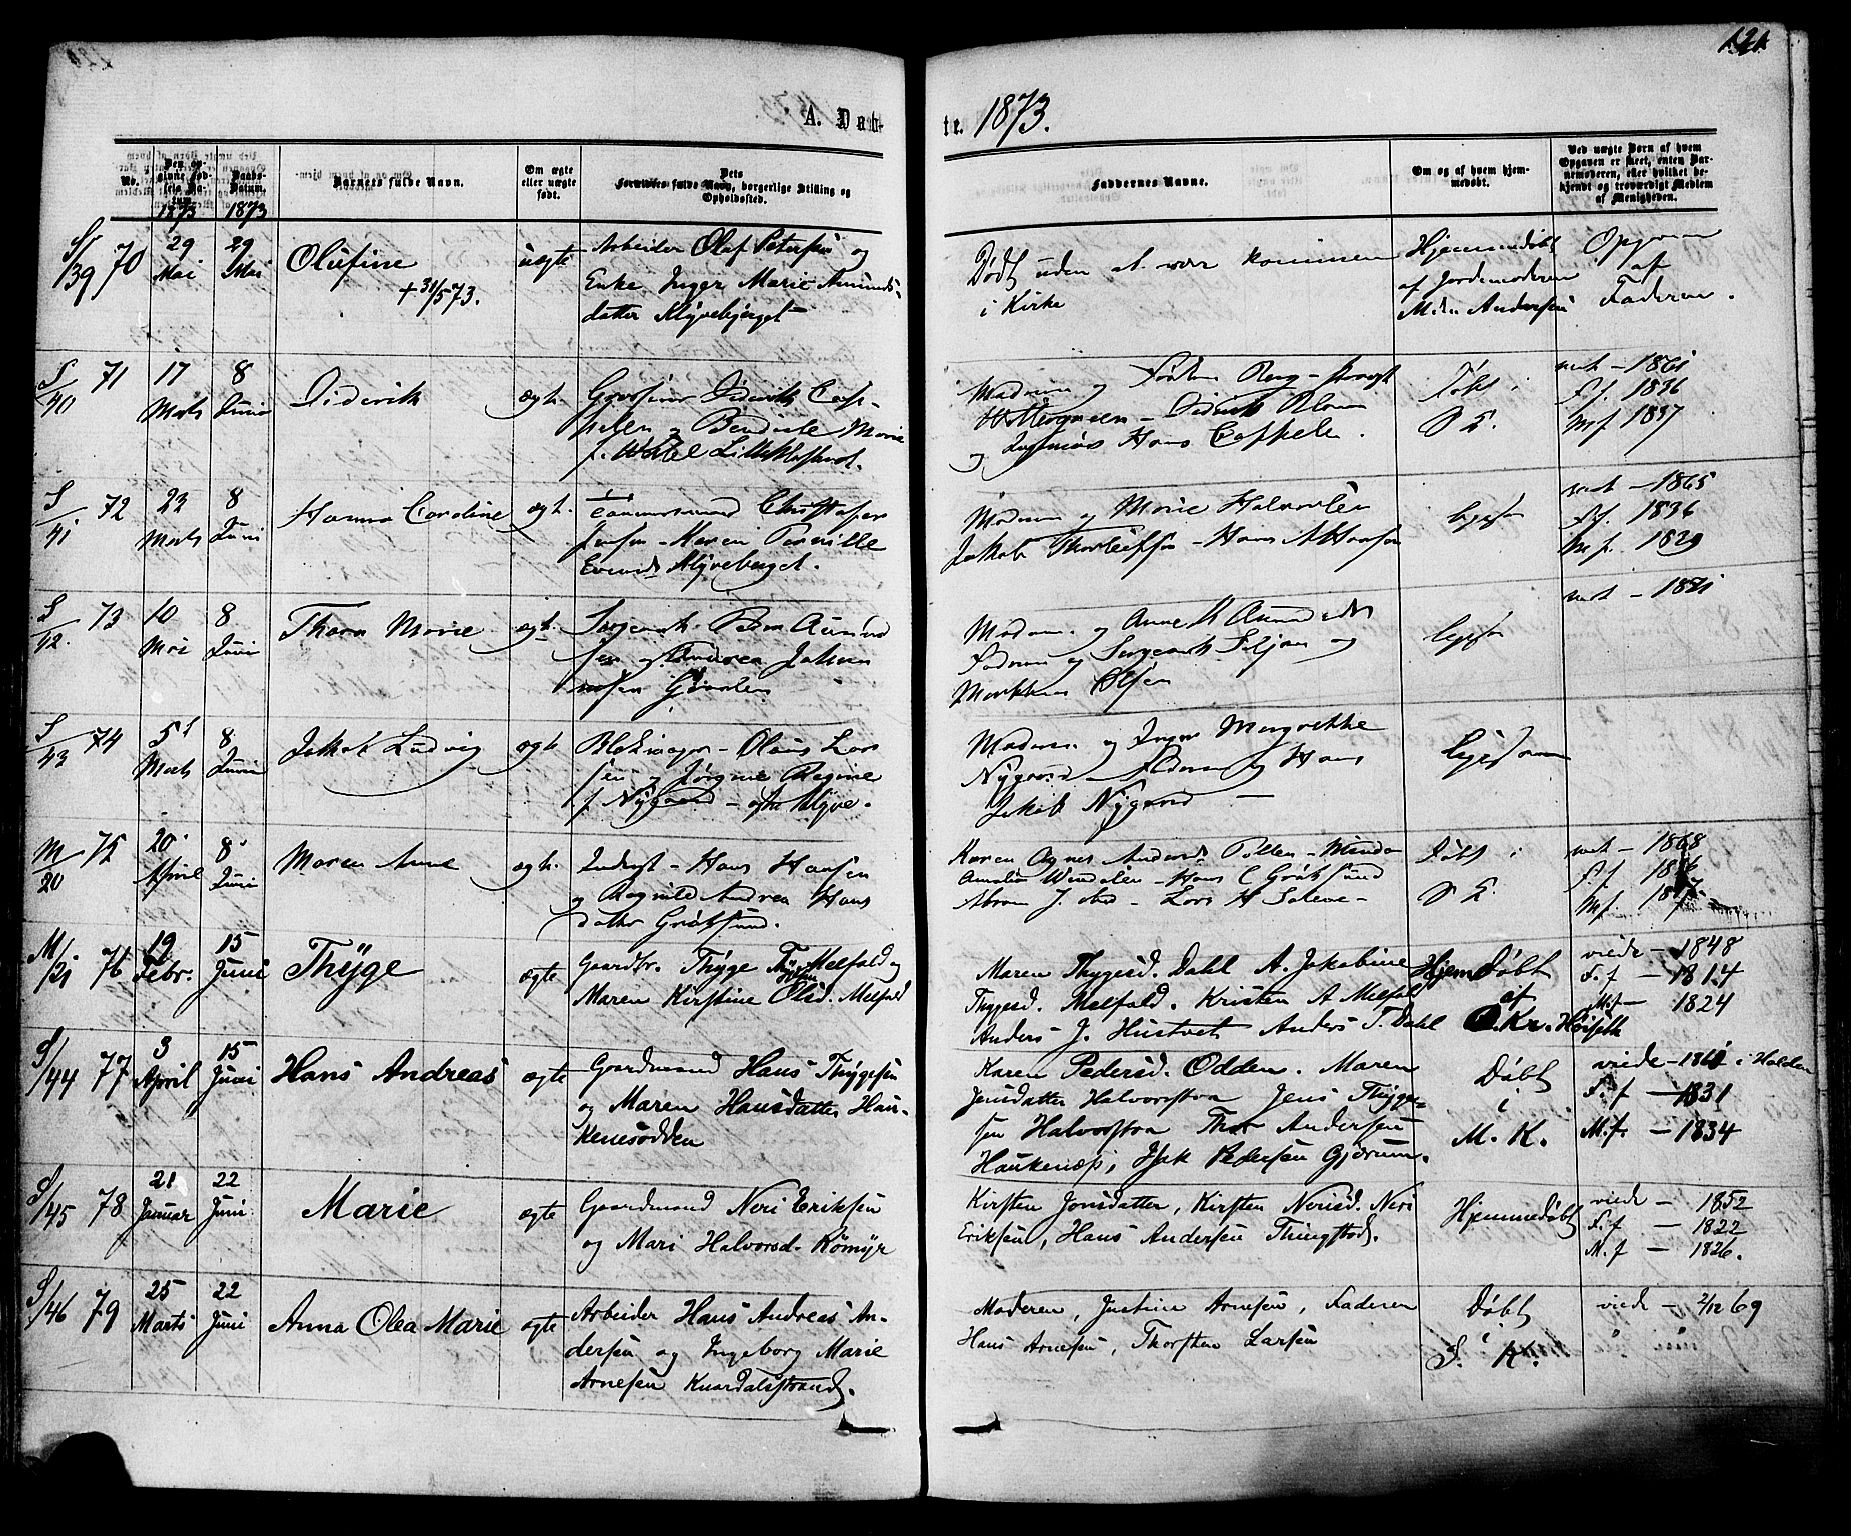 121
A. Døb-
te. 1873.
No.
Den opgivne Fødsels Datum.
1873
Daabs-Datum.
1873
Barnets fulde Navn.
Om ægte eller uægte født.
Dets Forældres fulde Navn, borgerlige Stilling og Opholdssted.
Faddernes Navne.
Om og af hvem hjemmedøbt.
Ved uægte Børn af hvem Opgaven er skeet, enten Barnemoderen, eller hvilket bekjendt og troværdigt Medlem af Menigheden.
S/39 70
29 Mai
29 Mai
Olufine
+ 31/5 73.
uægte
Arbeider Olaf Petersen og
Enke Inger Marie Amunds-
datter Klyvebjerget
Født uden at være kommen
i Kirke
Hjemmedøbt
af Jordemoderen
M. Andersen
Opgaven
af
Faderen.
S/40 71
17 Marts
8 Juni
Diderik
ægt.
Diderik Cap-
pelen og Benedicte Marie
f.
Madmm og
Hans Cappelen.
Døbt i
S K.
viet - 1861
F.f. 1836
M.f 1837
S/41 72
23 Marts
8 Juni
Hanna Caroline
ægt.
Tømmermand Christopher
Jensen - Karen Pernille
Evensd Klyveberget.
Madmm og Marie Halvorsen
Jakob Thorleifsen - Hans A Hansen
ligesaa
viet - 1865
F.f. 1836
M.f. 1829
S/42 73
10 Mai
8 Juni
Thora Marie
ægt.
Sergeant Peder Aamund
sen og Andrea Johan
nesen
Madmm og Anne M Aamundsdtr
Faderen og Sergeant Siljan og
Markus Olsen
ligesaa
viet - 1871
S/43 74
5 Marts
8 Juni
Jakob Ludvig
ægt
Blokmager - Olaus Lar
sen og Jørgine Regine
f. Nygaard - Klyve.
Madmm og Inger Margrethe
Nygaard - Faderen og Hans
Jakob Nygaard
ligesaa
M/20 75
20 April
8 Juni
Maren Anne
ægt.
Inderst - Hans Hansen
og Ragnild Andrea Hans
datter Gråtsund.
Karen Agnes Andersd - Minda
Amalie - Hans C Gråtsund
Abram - Lars H
Døbt i
S K.
viet - 1868
F.f. 18
M.f. 18
M/21 76
19 Febr.
15 Juni
Thÿge
ægte
Gaardbr. Thyge Thyges Melfald og
Maren Kirstine Olsd. Melfald
Maren Thygesd. Dahl A. Jakobine
Thygesd. Melfald. Kristen A Melfald
Anders J. Hustvet Anders T. Dahl
Hjem Døbt
af
O. Kr. Høiseth
viede - 1848
F.f - 1814
M.f - 1824
S/44 77
3 April
15 Juni
Hans Andreas
ægte
Gaardmand Hans Thygesen
og Maren Hansdatter Hau-
kenesodden
Karen Pedersd. Odden. Maren
Jensdatter Halvorstva Jens Thyge-
sen Halvorstva Thor Andersen
Haukenæs, Isak Pedersen Gjerum.
Døbt
i
M. K.
viede - 1861 i Holden
F.f - 1831
M.f. - 1834
S/45 78
21 Januar
22 Juni
Marie
ægte
Gaardmand Neri Eriksen
og Mari Halvorsd. Kømyr
Kirsten Jonsdatter, Kirsten Nerisd. Neri
Eriksen, Hans Andersen Thingstad.
Hjemmedøbt
viede - 1852
F.f - 1822
M.f - 1826.
S/46 79
25 Marts
22 Juni
Anna Olea Marie
ægte
Arbeider Hans Andreas An-
dersen og Ingeborg Marie
Arnesen Knardalsstrand.
Moderen, Justine Arnesen, Faderen
Hans Arnesen, Thorsten Larsen
Døbt
i
S. K.
viede - 2/12 69